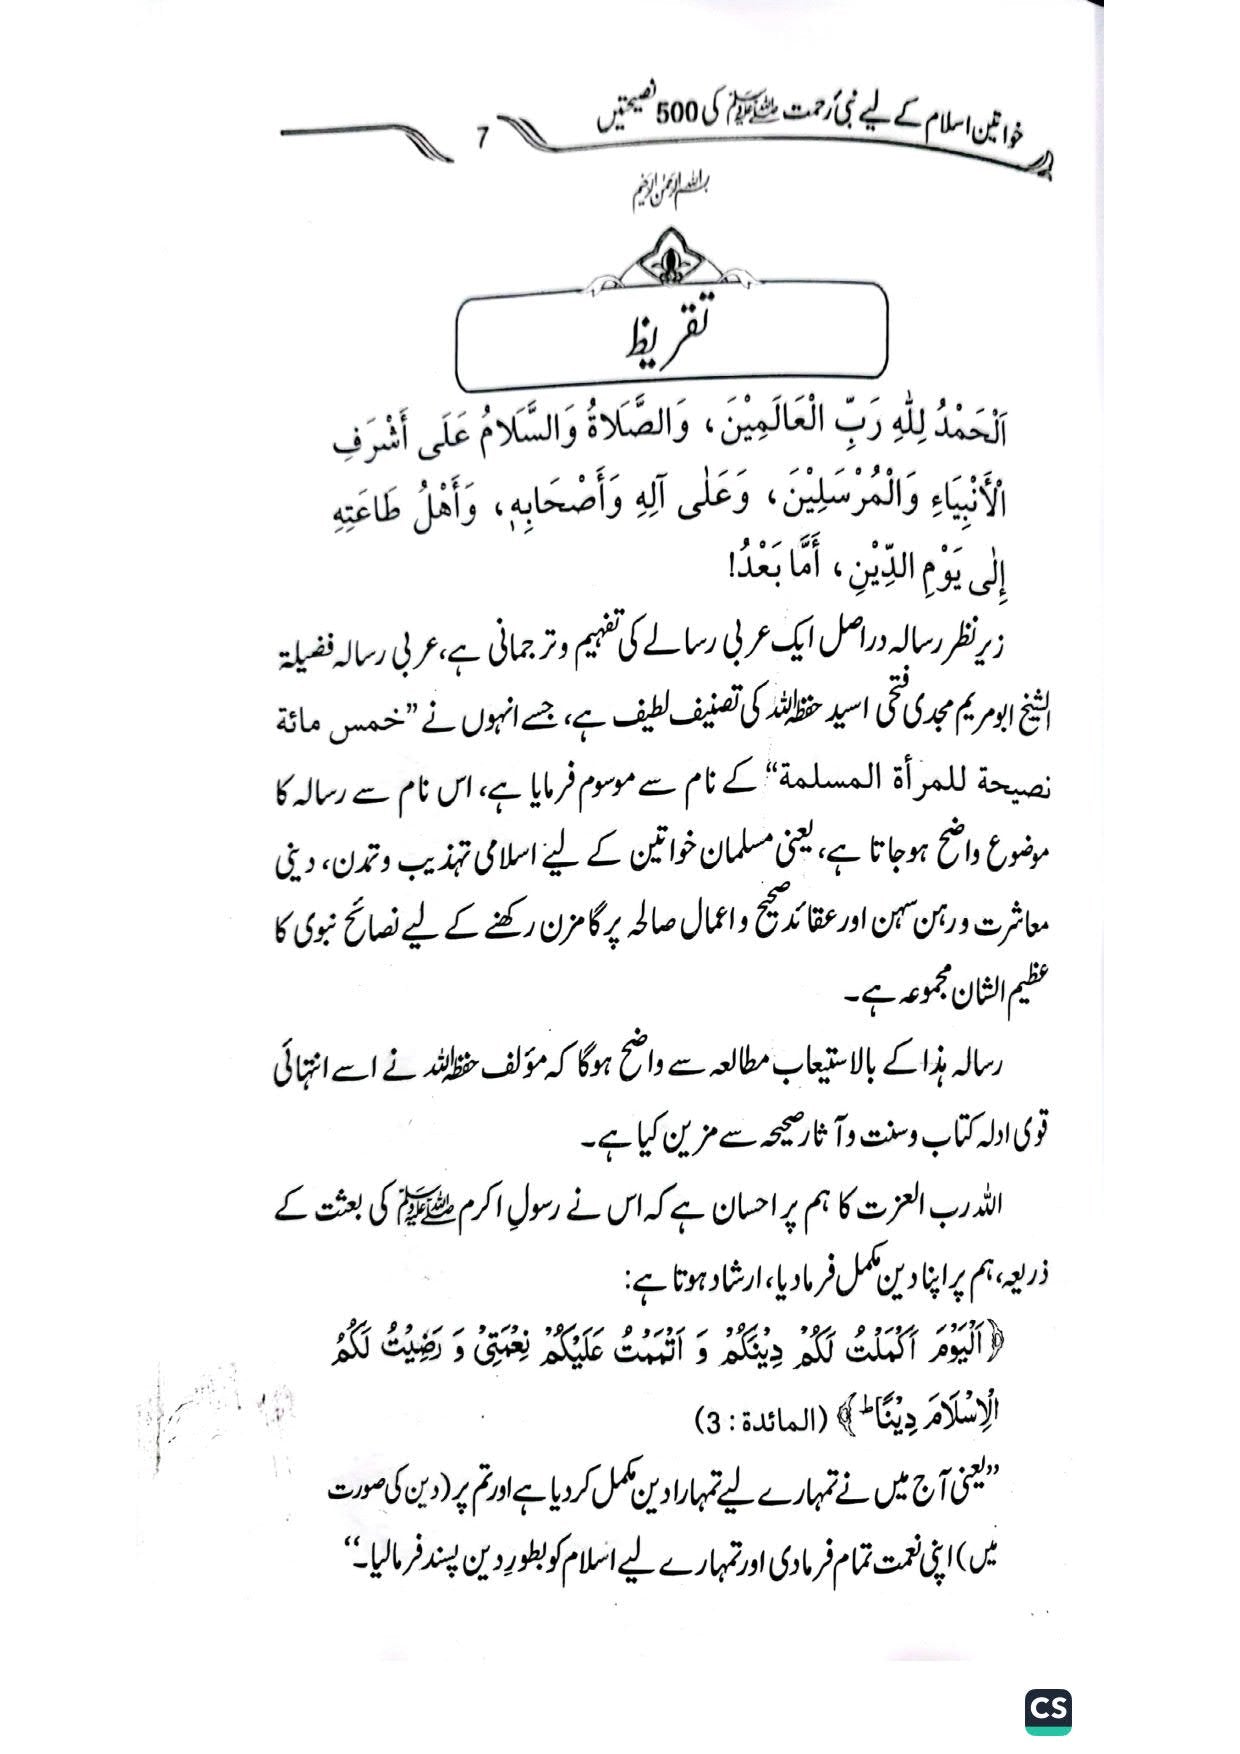 خواتین اسلام کے لیے نبیٔ رحمت ﷺ کی 500 نصیحتیں
7
بسم اللہ الرحمٰن الرحیم
تقریظ
اَلْحَمْدُ لِلّٰهِ رَبِّ الْعَالَمِيْنَ، وَالصَّلَاةُ وَالسَّلَامُ عَلَى أَشْرَفِ
الْأَنْبِيَاءِ وَالْمُرْسَلِيْنَ، وَعَلٰى آلِهِ وَأَصْحَابِهٖ، وَأَهْلُ طَاعَتِهِ
إِلٰى يَوْمِ الدِّيْنِ، أَمَّا بَعْدُ!
زیر نظر رسالہ دراصل ایک عربی رسالے کی تفہیم وترجمانی ہے، عربی رسالہ فضیلۃ
الشیخ ابومریم مجدی فتحی اسید حفظہ اللہ کی تصنیف لطیف ہے، جسے انہوں نے ”خمس مائة
نصيحة للمرأة المسلمة“ کے نام سے موسوم فرمایا ہے، اس نام سے رسالہ کا
موضوع واضح ہوجاتا ہے، یعنی مسلمان خواتین کے لیے اسلامی تہذیب وتمدن، دینی
معاشرت ورہن سہن اور عقائد صحیح واعمال صالحہ پر گامزن رکھنے کے لیے نصائح نبوی کا
عظیم الشان مجموعہ ہے۔
رسالہ ہذا کے بالاستیعاب مطالعہ سے واضح ہوگا کہ مؤلف حفظہ اللہ نے اسے انتہائی
قوی ادلہ کتاب وسنت وآثار صحیحہ سے مزین کیا ہے۔
اللہ رب العزت کا ہم پر احسان ہے کہ اس نے رسولِ اکرم ﷺ کی بعثت کے
ذریعہ، ہم پر اپنا دین مکمل فرمادیا، ارشاد ہوتا ہے:
﴿اَلْيَوْمَ اَكْمَلْتُ لَكُمْ دِيْنَكُمْ وَ اَتْمَمْتُ عَلَيْكُمْ نِعْمَتِيْ وَ رَضِيْتُ لَكُمُ
الْاِسْلَامَ دِيْنًا ؕ﴾ (المائدة: 3)
”یعنی آج میں نے تمہارے لیے تمہارا دین مکمل کردیا ہے اور تم پر (دین کی صورت
میں) اپنی نعمت تمام فرمادی اور تمہارے لیے اسلام کو بطورِ دین پسند فرمالیا۔“
CS